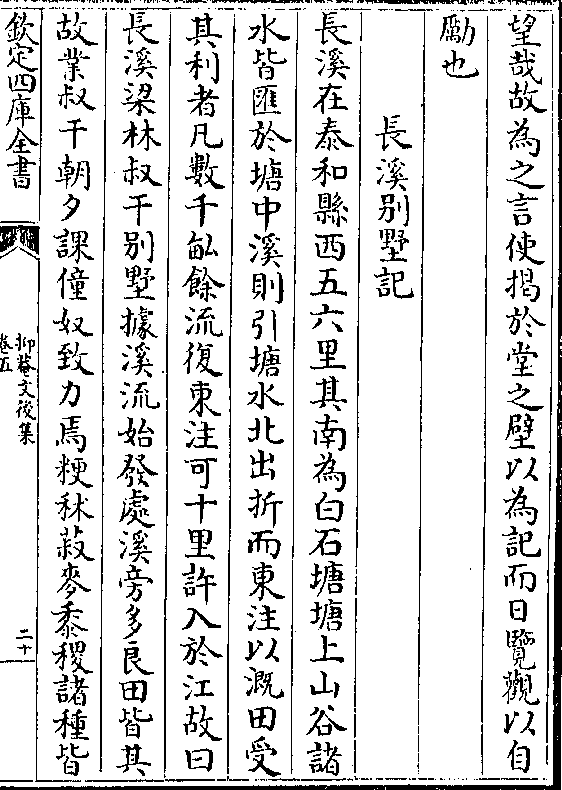 望哉故為之言使揭於堂之壁以為記而日覽觀以自
勵也
長溪別墅記
長溪在泰和縣西五六里其南為白石塘塘上山谷諸
水皆匯於塘中溪則引塘水北出折而東注以溉田受
其利者凡數千畝餘流復東注可十里許入於江故曰
長溪梁林叔干別墅據溪流始發處溪旁多良田皆其
故業叔干朝夕課僮奴致力焉粳秫菽麥黍稷諸種皆
欽定四庫全書
抑菴文後集
卷五
二十